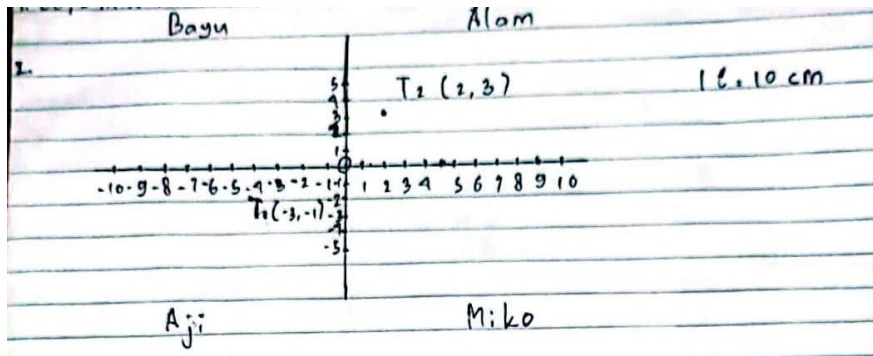 Bayu Alam
1.
5
4 T2 (2,3) 1 l = 10 cm
3
2
1
0
-10 -9 -8 -7 -6 -5 -4 -3 -2 -1 1 2 3 4 5 6 7 8 9 10
-1
-2
T1 (-3,-1) -3
-4
-5
Aji Miko